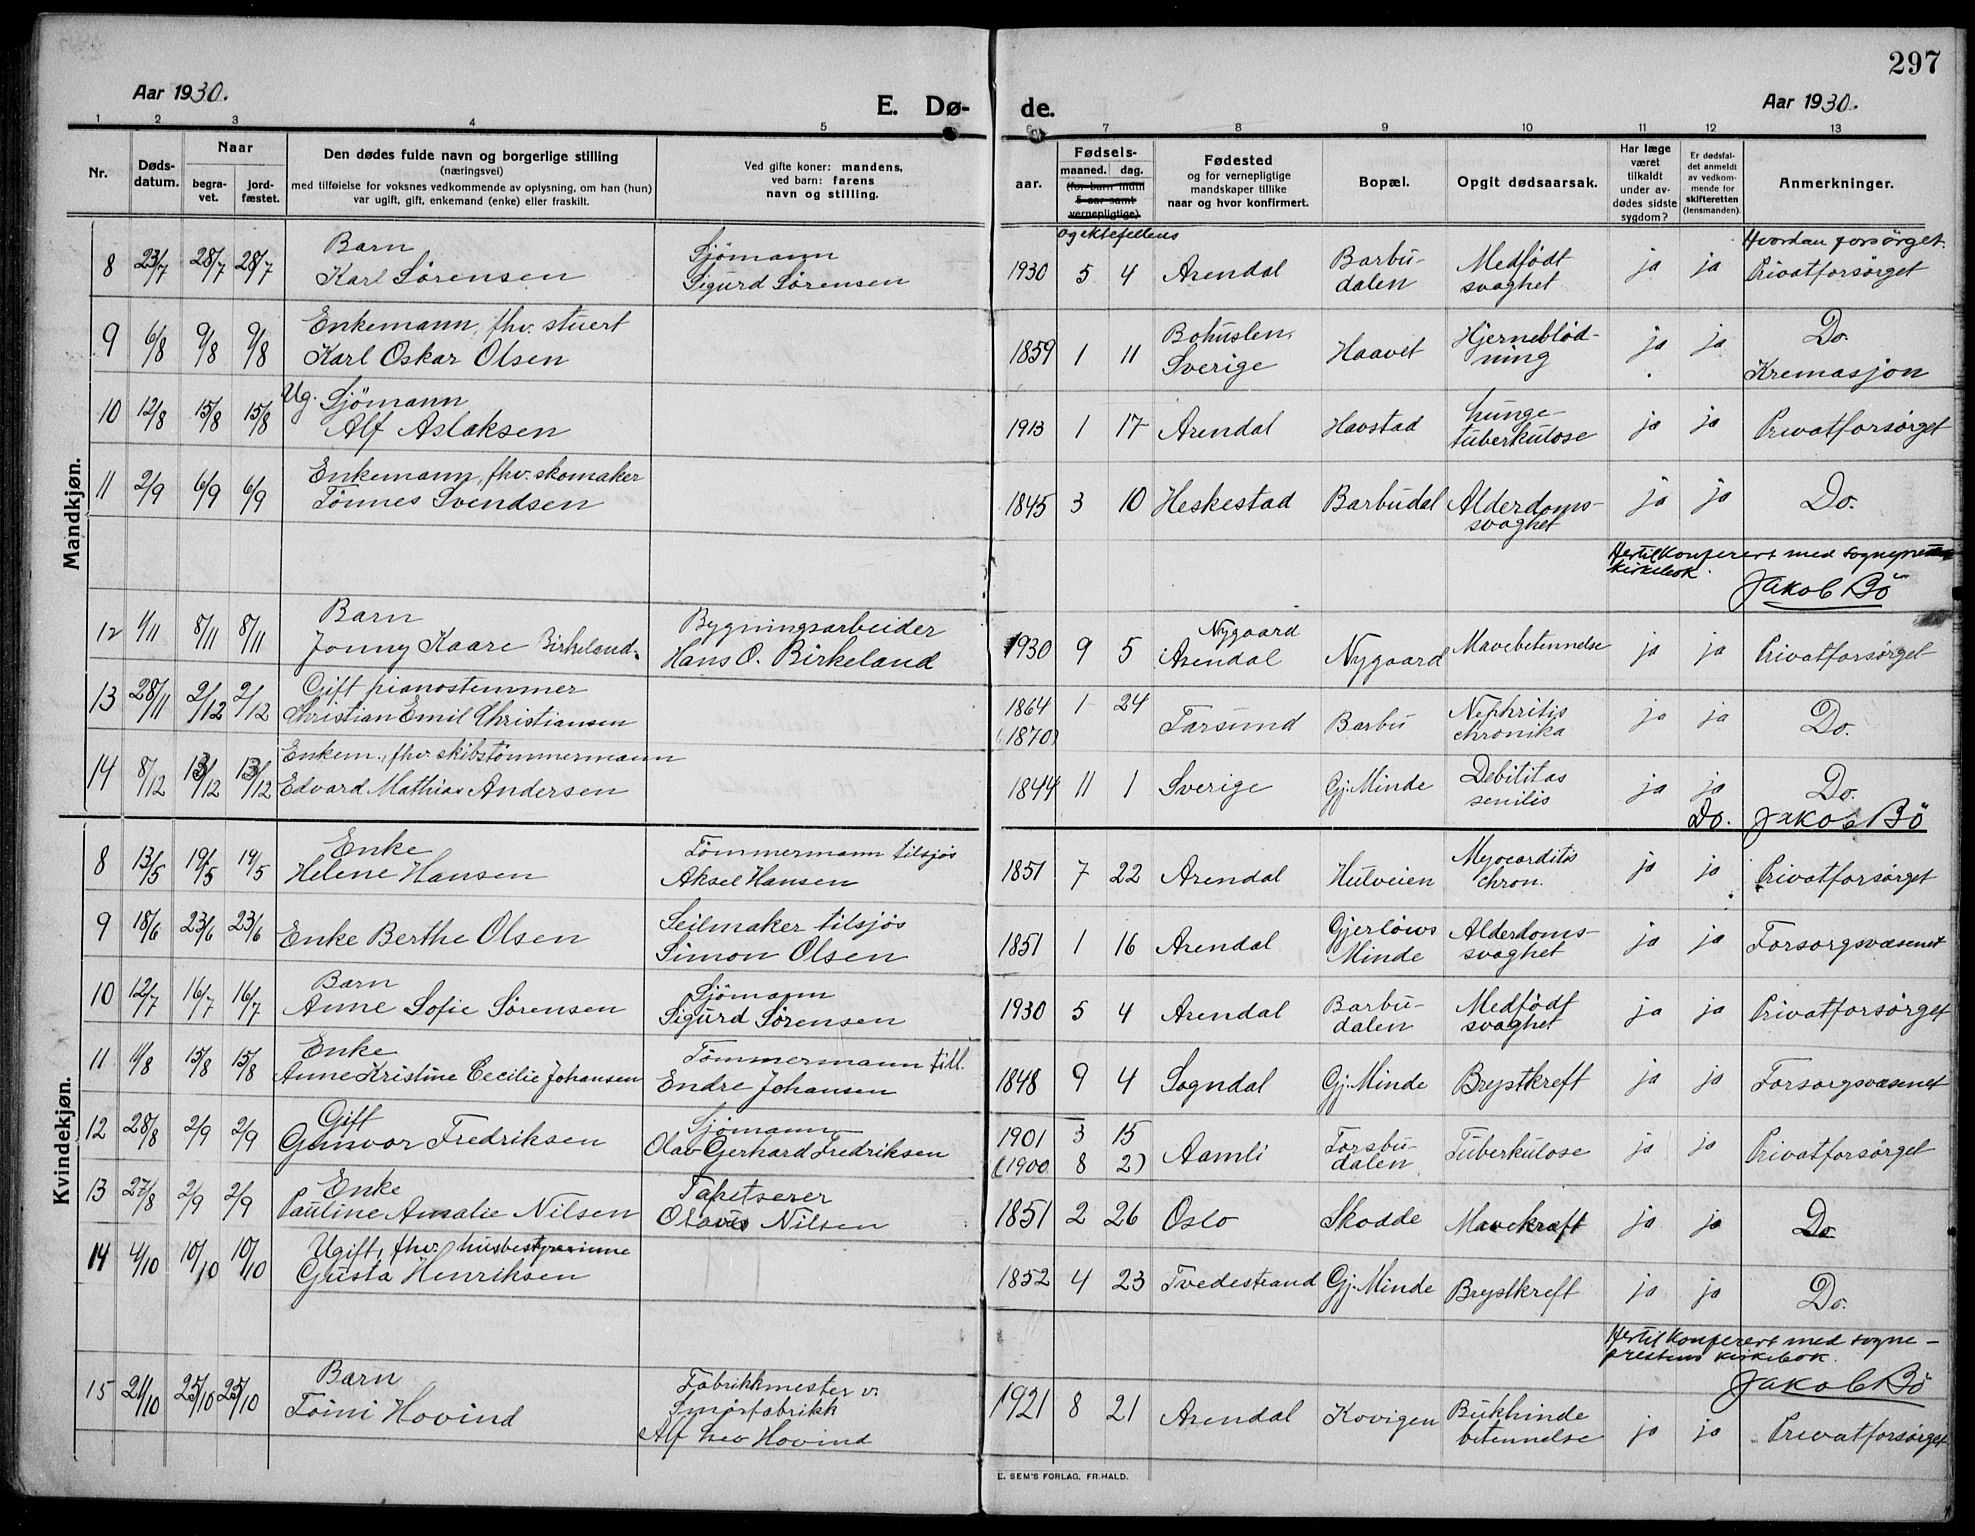 297
Aar 1930.
E. Dø- de.
Aar 1930.
1 2 3 4 5 7 8 9 10 11 12 13
Nr.
Døds-
datum.
Naar
begra-
vet.
jord-
fæstet.
Den dødes fulde navn og borgerlige stilling
(næringsvei)
med tilføielse for voksnes vedkommende av oplysning, om han (hun)
var ugift, gift, enkemand (enke) eller fraskilt.
Ved gifte koner: mandens,
ved barn: farens
navn og stilling.
aar.
Fødsels-
maaned. dag.
(for barn indtil
5 aar samt
vernepligtige)
og ektefellens
Fødested
og for vernepligtige
mandskaper tillike
naar og hvor konfirmert.
Bopæl.
Opgit dødsaarsak.
Har læge
været
tilkaldt
under av-
dødes sidste
sygdom?
Er dødsfal-
det anmeldt
av vedkom-
mende for
skifteretten
(lensmanden).
Anmerkninger.
Hvordan forsørget.
Mandkjøn.
8 23/7 28/7 28/7 Barn
Karl Sørensen
Sjømann
Sigurd Sørensen
1930 5 4 Arendal Barbu-
dalen
Medfødt
svaghet
ja ja Privatforsørget
9 6/8 9/8 9/8 Enkemann, fhv. stuert
Karl Oskar Olsen
1859 1 11 Bohuslen,
Sverige
Haavet
Hjerneblød-
ning
ja ja Do.
Kremasjon
10 12/8 15/8 15/8 Ug. Sjømann
Alf Aslaksen
1913 1 17 Arendal Havstad Lunge-
tuberkulose
ja ja Privatforsørget
11 2/9 6/9 6/9 Enkemann, fhv. skomaker
Tönnes Svendsen
1845 3 10 Heskestad Barbudal Alderdoms-
svaghet
ja ja Do.
Hertil konferert med sogneprestens
kirkebok.
Jakob Bö
12 1/11 8/11 8/11 Barn
Jonny Kaare Birkeland.
Bygningsarbeider
Hans O. Birkeland
1930 9 5 Nygaard
Arendal
Nygaard Mavebetennelse ja ja Privatforsørget
13 28/11 2/12 2/12 Gift pianostemmer
Christian Emil Christiansen
1864
(1870)
1 24 Farsund Barbu Nephritis
chronika
ja ja Do.
14 8/12 13/12 13/12 Enkem., fhv. skibstömmermann
Edvard Mathias Andersen
1844 11 1 Sverige Gj. Minde Debititas
senilis
ja ja Do.
Do. Jakob Bö
Kvindekjøn.
8 13/5 19/5 19/5 Enke
Helene Hansen
Tömmermann tilsjøs
Aksel Hansen
1851 7 22 Arendal Hulveien Myocarditis
chron.
ja ja Privatforsørget
9 18/6 23/6 23/6 Enke Berthe Olsen
Seilmaker tilsjøs
Simon Olsen
1851 1 16 Arendal Gjerløws
Minde
Alderdoms-
svaghet
ja ja Forsorgsvæsenet
10 12/7 16/7 16/7 Barn
Anne Sofie Sørensen
Sjömann
Sigurd Sørensen
1930 5 4 Arendal Barbu-
dalen
Medfödt
svaghet
ja ja Privatforsørget
11 11/8 15/8 15/8 Enke
Anne Kristine Cecilie Johansen
Tömmermann tidl.
Endre Johansen
1848 9 4 Sogndal Gj. Minde Brystkreft ja ja Forsorgsvæsenet
12 28/8 2/9 2/9 Gift
Gunvor Fredriksen
Sjömann
Olav Gerhard Fredriksen
1901 3 15
(1900 8 2)
Aamli Torsbu-
dalen
Tuberkulose ja ja Privatforsørget
13 27/8 2/9 2/9 Enke
Pauline Amalie Nilsen
Tapetserer
Olavus Nilsen
1851 2 26 Oslo Skodde Mavekræft ja ja Do
14 4/10 10/10 10/10 Ugift, fhv. husbestyrerinne
Gusta Henriksen
1852 4 23 Tvedestrand Gj. Minde Brystkreft ja ja Do.
Hertil konferert med sogne-
prestens kirkebok.
Jakob Bö
15 21/10 25/10 25/10 Barn
Toini Hovind
Fabrikkmester v.
Smørfabrikk
Alf Leo Hovind
1921 8 21 Arendal Kovigen Bukhinde
betennelse
ja ja Privatforsørget
E. SEM'S FORLAG, FR.HALD.